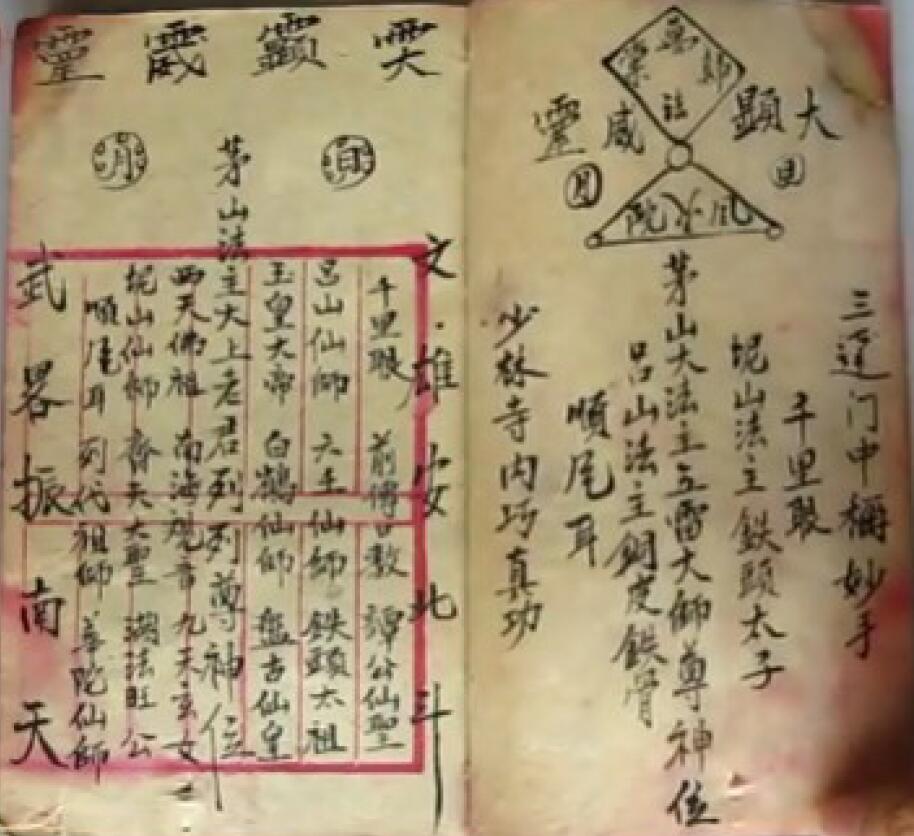 大顯威靈
日 月
院
三门中妙手
千里眼
坭山法主 鉄頭太子
茅山大法主五雷大師尊神位
呂山法主銅皮鉄骨
順尾耳
少林寺内巧真功
靈
日 月
文雄安北斗
千里眼 前傳口教 譚公仙聖
呂山仙師 六壬仙師 鉄頭太祖
玉皇大帝 白鶴仙師 盤古仙皇
茅山法主大上老君列列尊神位
西天佛祖 南海观音 九天玄女
坭山仙師 齊天大聖 法旺公
順尾耳 列代祖師 華陀仙師
武畧振南天